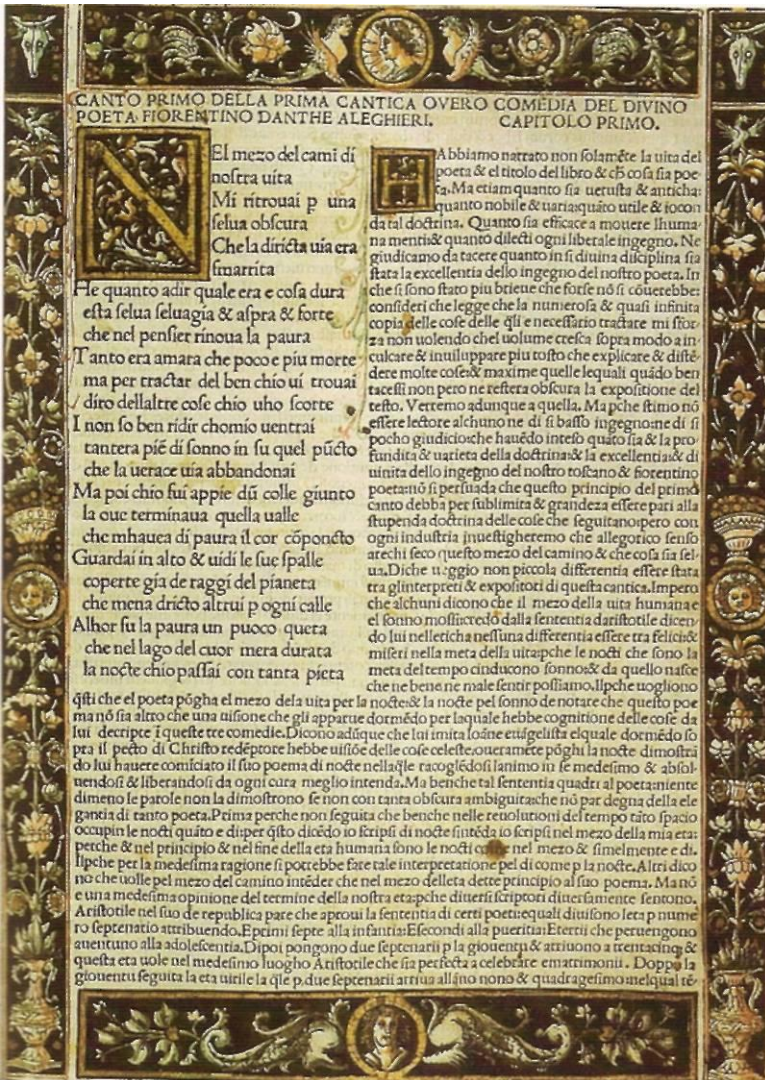 CANTO PRIMO DELLA PRIMA CANTICA OVERO COMEDIA DEL DIVINO
POETA FIORENTINO DANTHE ALEGHIERI. CAPITOLO PRIMO.
NEl mezo del cami di
nostra uita
Mi ritrouai p una
selua obscura
Che la diricta uia era
smarrita
He quanto adir quale era e cosa dura
esta selua seluagia & aspra & forte
che nel pensier rinoua la paura
Tanto era amara che poco e piu morte
ma per tractar del ben chio ui trouai
diro dellaltre cose chio uho scorte
I non so ben ridir chomio uentrai
tantera piē di sonno in su quel pūcto
che la uerace uia abbandonai
Ma poi chio fui appie dū colle giunto
la oue terminaua quella ualle
che mhauea di paura il cor cōponcto
Guardai in alto & uidi le sue spalle
coperte gia de raggi del pianeta
che mena dricto altrui p ogni calle
Alhor fu la paura un puoco queta
che nel lago del cuor mera durata
la nocte chio passai con tanta pieta
HAbbiamo narrato non solamēte la uita del
poeta & el titolo del libro & ch̄ cosa sia poe
ta. Ma etiam quanto sia uetusta & anticha:
quanto nobile & uaria: quāto utile & iocon
da tal doctrina. Quanto sia efficace a mouere lhuma
na menti: & quanto dilecti ogni liberale ingegno. Ne
giudicamo da tacere quanto in si diuina disciplina sia
stata la excellentia dello ingegno del nostro poeta. In
che si sono stato piu brieue che forse nō si cōuerebbe:
consideri che legge che la numerosa & quasi infinita
copia delle cose delle q̄li e necessario tractare mi sfor
za non uolendo chel uolume cresca sopra modo a in
culcare & inuiluppare piu tosto che explicare & distē
dere molte cose: & maxime quelle lequali quādo ben
tacessi non pero ne restera obscura la expositione del
testo. Verremo adunque a quella. Ma pche stimo nō
essere lectore alchuno ne di si basso ingegno: ne di si
pocho giudicio: che hauēdo inteso quāto sia & la pro
fundita & uarieta della doctrina: & la excellentia & di
uinita dello ingegno del nostro toscano & fiorentino
poeta: nō si persuada che questo principio del primo
canto debba per sublimita & grandeza essere pari alla
stupenda doctrina delle cose che seguitano: pero con
ogni industria inuestigheremo che allegorico senso
arechi seco questo mezo del camino & che cosa sia sel
ua. Di che ueggio non piccola differentia essere stata
tra glinterpreti & expositori di questa cantica. Impero
che alchuni dicono che il mezo della uita humana e
el sonno mossi: credo dalla sententia daristotile dicen
do lui nelleticha nessuna differentia essere tra felici: &
miseri nella meta della uita: pche le nocti che sono la
meta del tempo cinducono sonno: & da quello nasce
che ne bene ne male sentir possiamo. Ilpche uogliono
q̄sti che el poeta pōgha el mezo dela uita per la nocte: & la nocte pel sonno de notare che questo poe
ma nō sia altro che una uisione che gli apparue dormēdo per laquale hebbe cognitione delle cose da
lui decripte ī queste tre comedie. Dicono adūque che lui imita Ioāne euāgelista elquale dormēdo so
pra il pecto di Christo redēptore hebbe uisiōe delle cose celeste: oueramēte pōghi la nocte dimostrā
do lui hauere comīciato il suo poema di nocte nella q̄le racoglēdosi lanimo in se medesimo & absol
uendosi & liberandosi da ogni cura meglio intenda. Ma benche tal sententia quadri al poeta: niente
dimeno le parole non la dimostrono se non con tanta obscura ambiguita: che nō par degna della ele
gantia di tanto poeta. Prima perche non seguita che benche nelle reuolutioni del tempo tāto spacio
occupin le nocti quāto e di: per q̄sto dicēdo io scripsi di nocte sintēda io scripsi nel mezo della mia eta:
perche & nel principio & nel fine della eta humana sono le nocti nel mezo & similmente e di.
Ilpche per la medesima ragione si potrebbe fare tale interpretatione pel di come p la nocte. Altri dico
no che uolle pel mezo del camino intēder che nel mezo delleta dette principio al suo poema. Ma nō
e una medesima opinione del termine della nostra eta: pche diuersi scriptori diuersamente sentono.
Aristotile nel suo de republica pare che aproui la sententia di certi poeti: equali diuisono leta p nume
ro septenario attribuendo. E primi septe alla infantia: E secondi alla pueritia: E tertii che peruengono
auentuno alla adolescentia. Dipoi pongono due septenarii p la giouentu & arriuono a trentacinq: &
questa eta uole nel medesimo luogho Aristotile che sia perfecta a celebrare e matrimonii. Doppo la
giouentu seguita la eta uirile la q̄le p. due septenarii arriua allāno nono & quadragesimo: nelqual tē